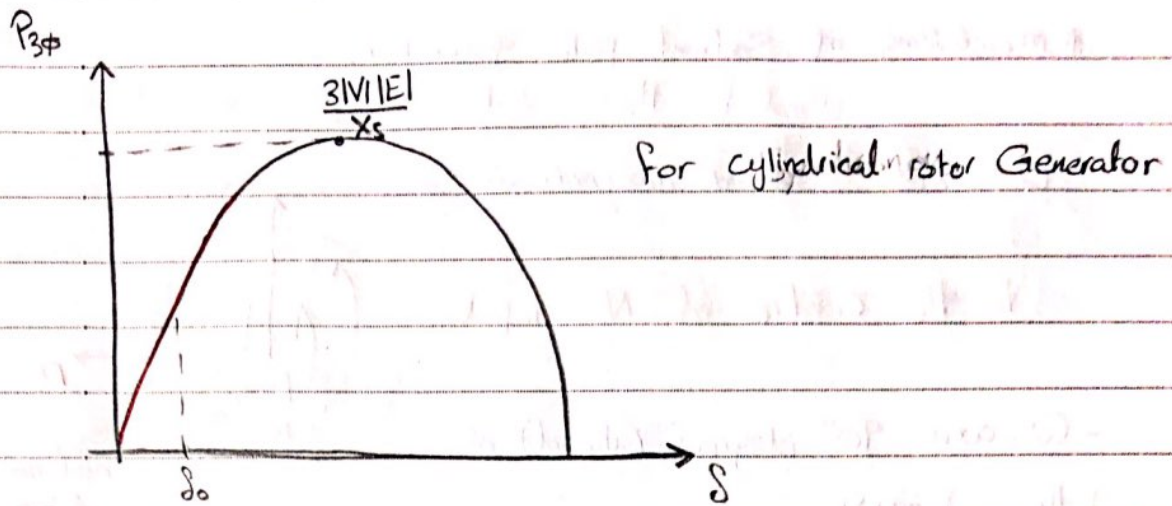 P3φ
3|V||E|
Xs
for cylindrical rotor Generator
δ0
δ